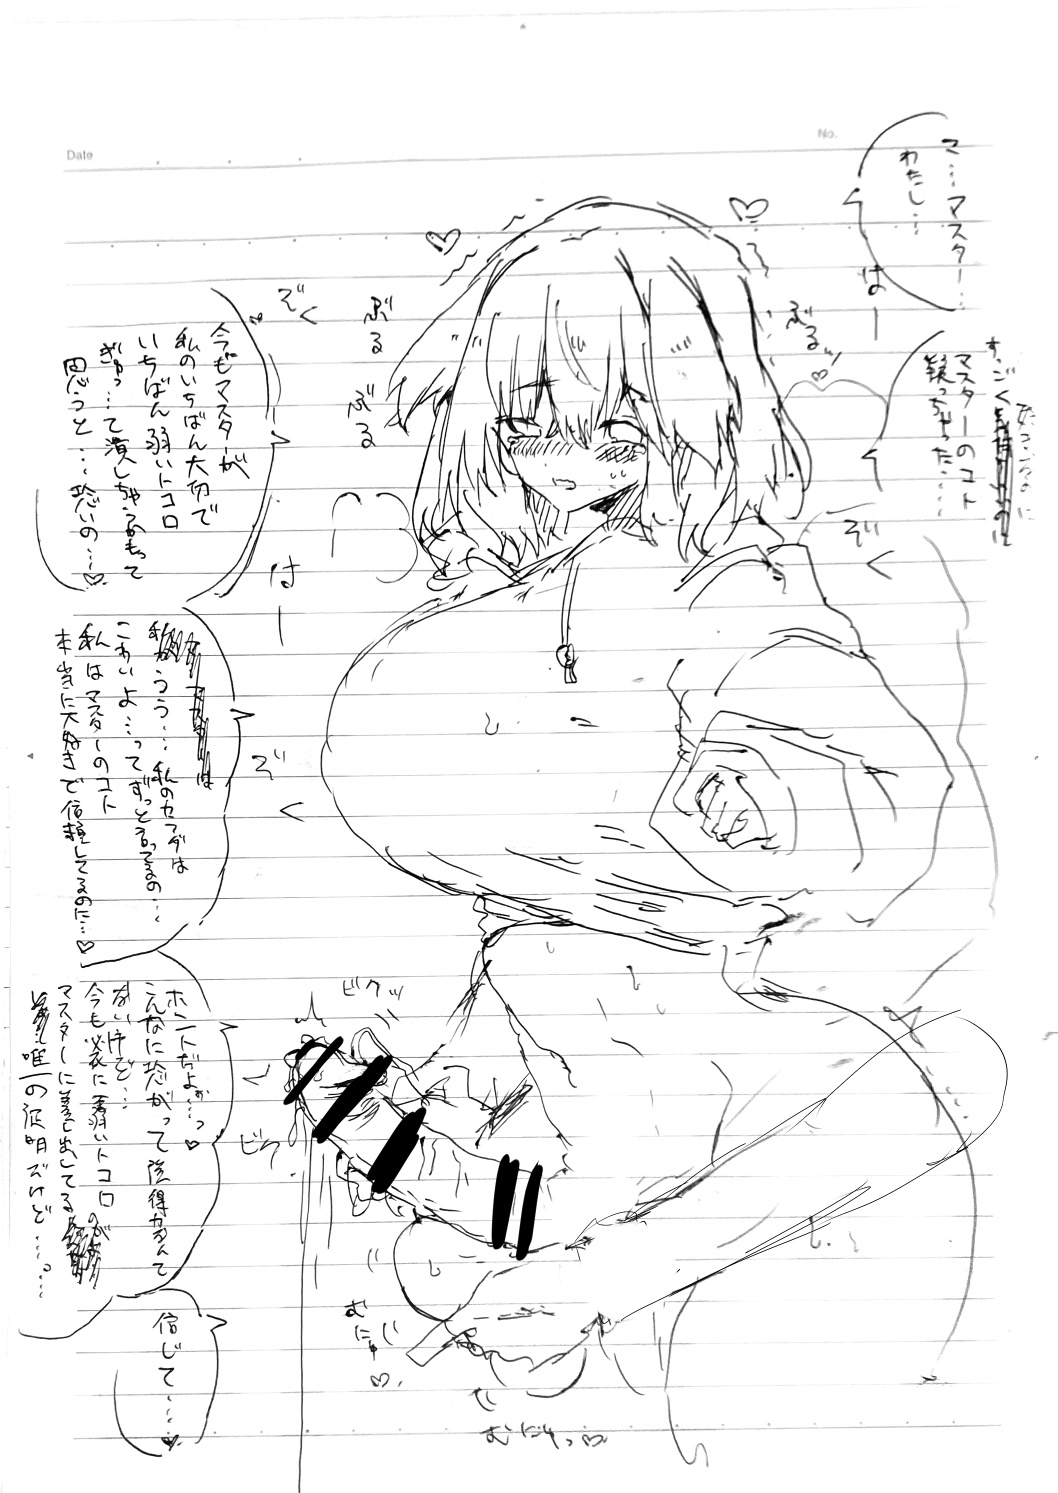 Date
No.
マ…マスター…
わたし…
はー
マスターのコト
疑っちゃった……
すごく
ぶるッ
ぞく
ぶる
ぶる
ぞく
今もマスターが
私のいちばん大切で
いちばん弱いトコロ
ぎゅっ…て潰しちゃうかもって
思うと…恐いの…♡
はー
ぞく
うう…私のカラダは
こわいよ…ってずっと言ってるの…
私はマスターのコト
本当に大好きで信頼してるのに…♡
ホントだよぉ…っ♡
こんなに恐がって説得力なんて
ないけど…
今も必死に弱いトコロ
マスターに差し出してる
唯一の証明だけど……
信じて……♡
ビクッ
ビク
むにゅ♡
むにゅっ♡